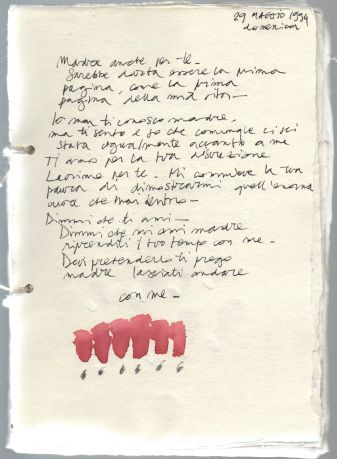 29 MAGGIO 1994
domenica
Madre anche per te_
Sarebbe dovuta essere la prima
pagina, come la prima
pagina della mia vita_
Io non ti conosco madre,
ma ti sento e so che comunque ci sei
stata ugualmente accanto a me
Ti amo per la tua discrezione
Lacrime per te. Mi commuove la tua
paura di dimostrarmi quell'enorme
cuore che hai dentro_
Dimmi che ti ami_
Dimmi che mi ami madre
riprenditi il tuo tempo con me_
Devi pretenderlo ti prego
madre lasciati andare
con me_
6 6 6 6 6 6